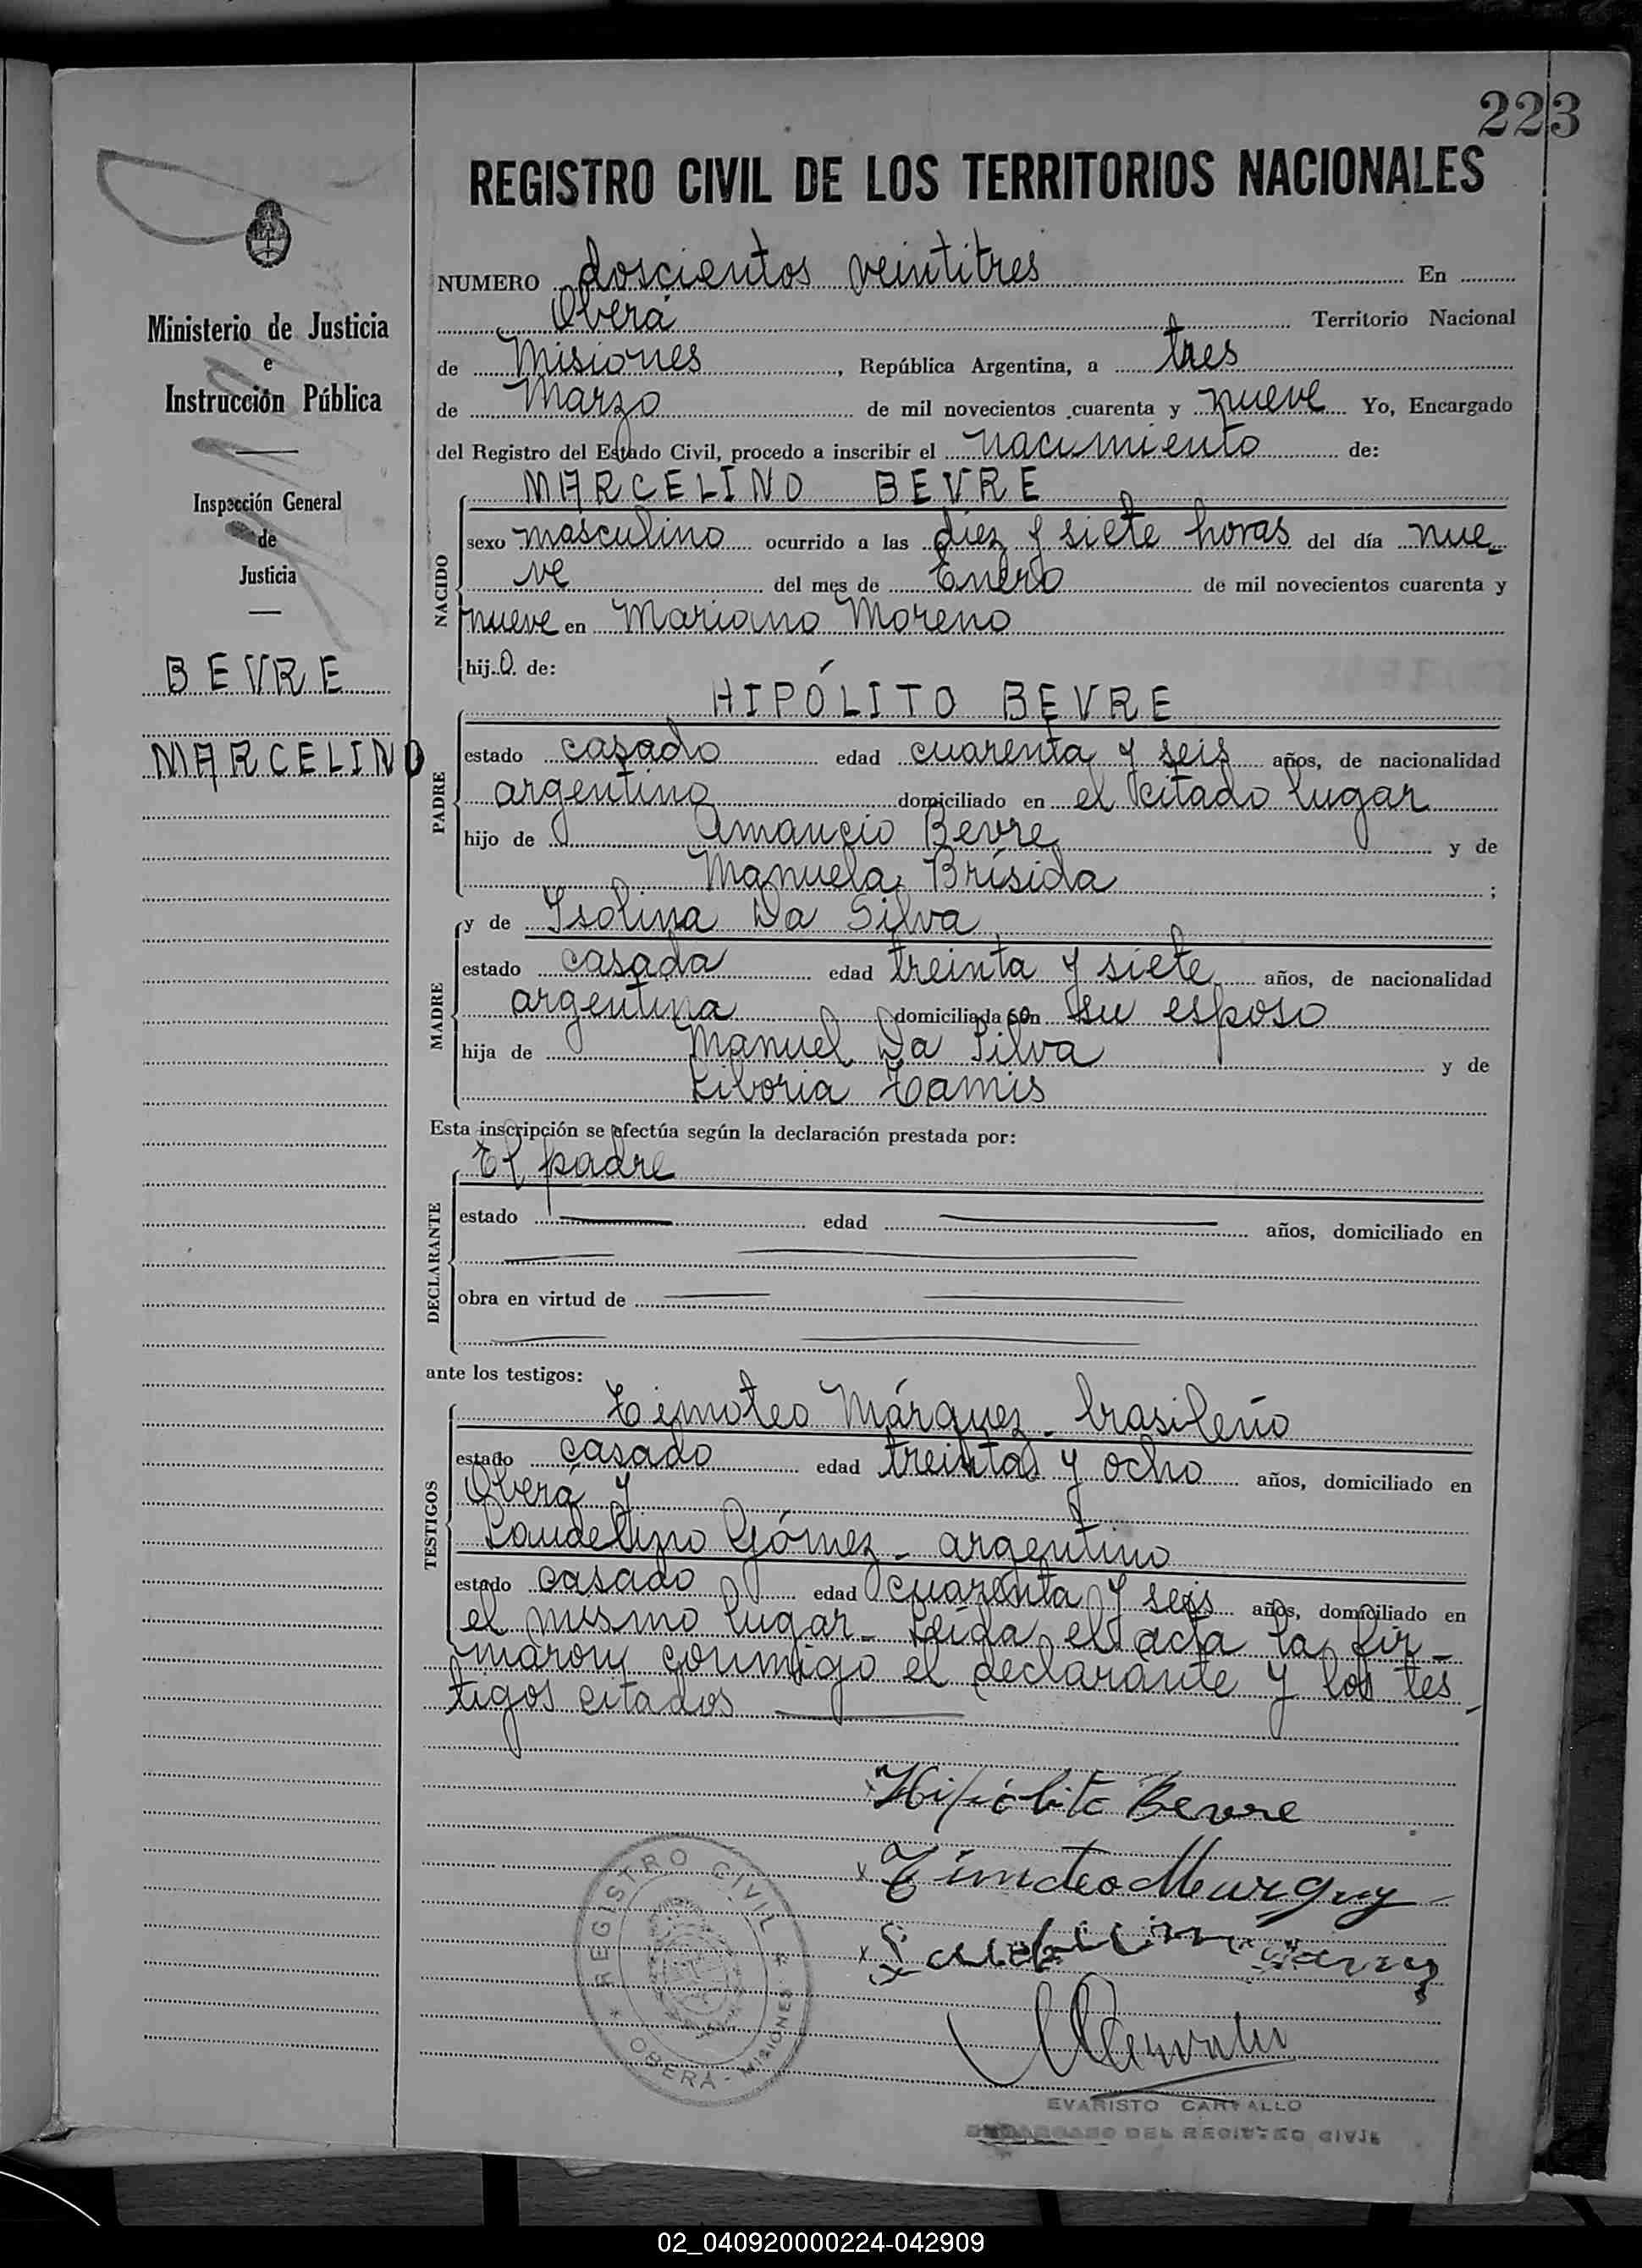 223
REGISTRO CIVIL DE LOS TERRITORIOS NACIONALES
Ministerio de Justicia
e
Instrucción Pública
Inspección General
de
Justicia
BEVRE
MARCELINO
NUMERO doscientos veintitres En
Oberá Territorio Nacional
de Misiones, República Argentina, a tres
de Marzo de mil novecientos cuarenta y nueve Yo, Encargado
del Registro del Estado Civil, procedo a inscribir el nacimiento de:
MARCELINO BEVRE
NACIDO
sexo masculino ocurrido a las diez y siete horas del día nue-
ve del mes de Enero de mil novecientos cuarenta y
nueve en Mariano Moreno
hijo de:
HIPÓLITO BEVRE
PADRE
estado casado edad cuarenta y seis años, de nacionalidad
argentino domiciliado en el citado lugar
hijo de Amancio Bevre y de
Manuela Brísida ;
y de Isolina Da Silva
MADRE
estado casada edad treinta y siete años, de nacionalidad
argentina domiciliada con su esposo
hija de Manuel Da Silva y de
Liboria Tamis
Esta inscripción se efectúa según la declaración prestada por:
El padre
DECLARANTE
estado edad años, domiciliado en
obra en virtud de
ante los testigos:
Timoteo Márquez - brasileño
TESTIGOS
estado casado edad treinta y ocho años, domiciliado en
Oberá y
Laudelino Gómez - argentino
estado casado edad cuarenta y seis años, domiciliado en
el mismo lugar - Leída el acta la fir-
maron conmigo el declarante y los tes-
tigos citados
Hipólito Bevre
REGISTRO CIVIL
OBERÁ - MISIONES
EVARISTO CARVALLO
ENCARGADO DEL REGISTRO CIVIL
02_040920000224-042909